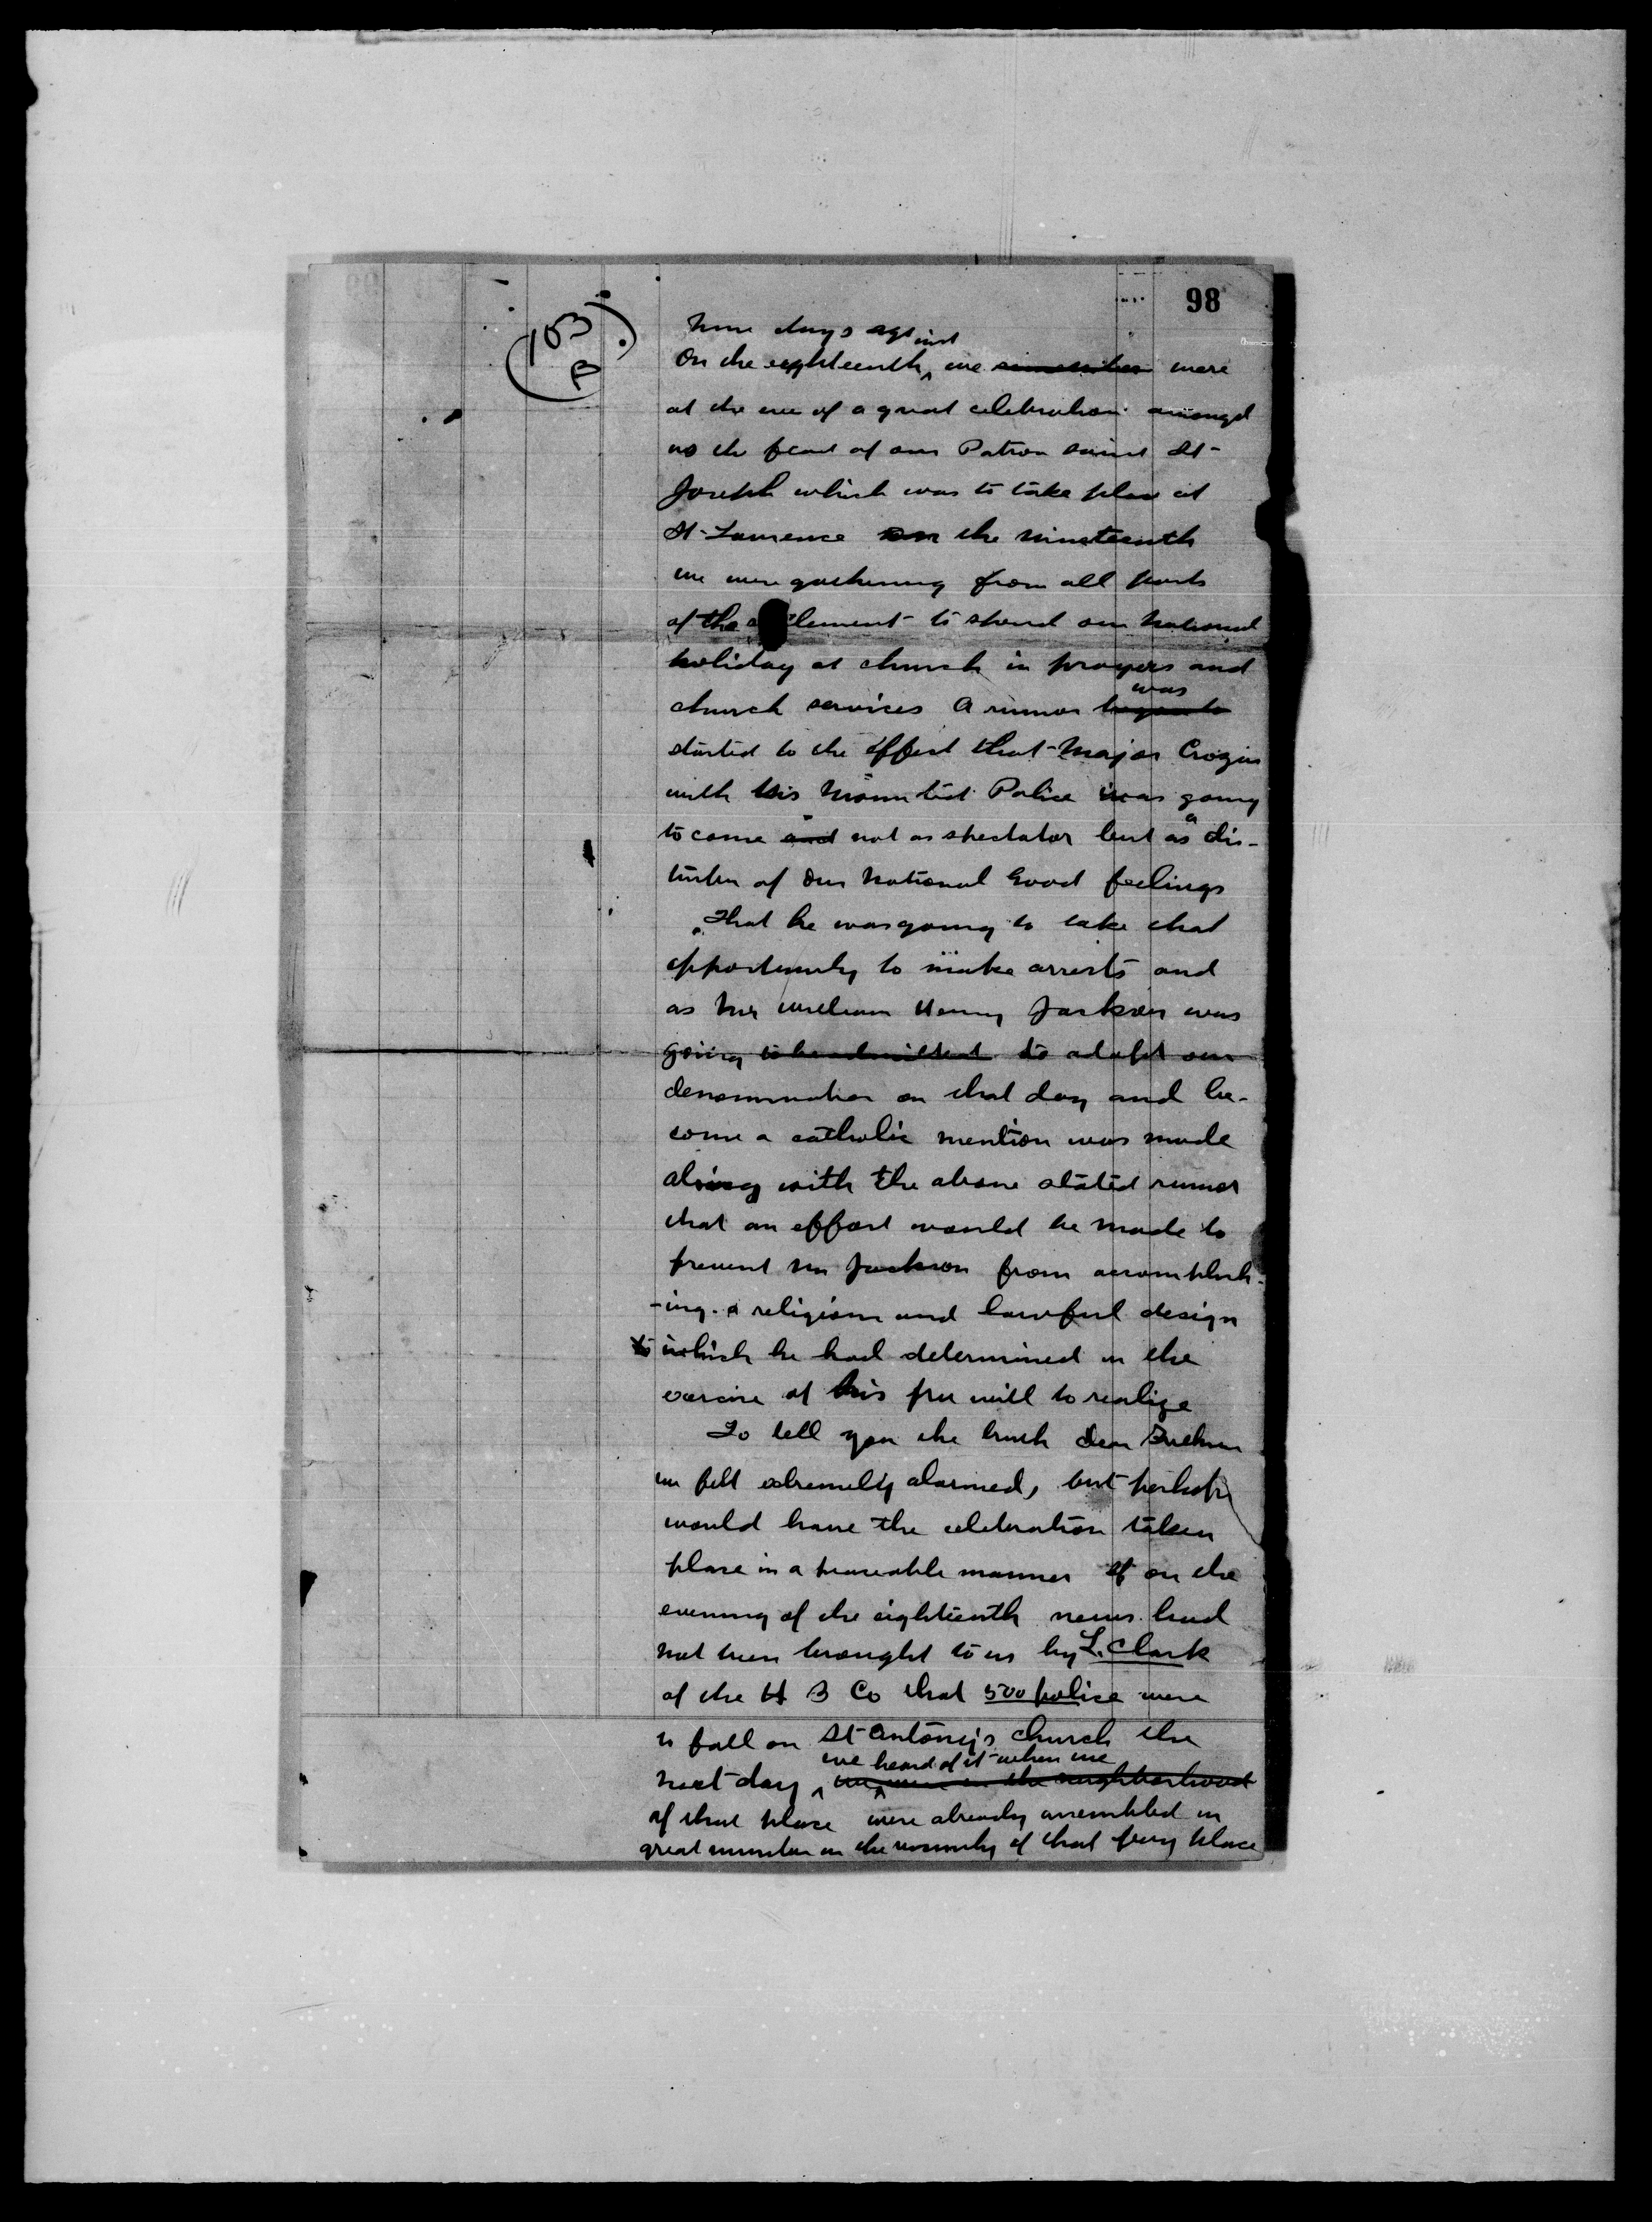 98
(103
B.)
days ago
On the eighteenth inst we were
at the eve of a great celebration amongst
us the feast of our Patron saint St-
Joseph which was to take place at
St-Laurence on the nineteenth
we were gathering from all parts
of the settlement to spend our National
holiday at church in prayers and
church services A rumor began to was
started to the effect that Major Crozier
with his Mounted Police was going
to come and not as spectator but as a dis-
turber of our National Good feelings
That he was going to take that
opportunity to make arrests and
as Mr William Henry Jackson was
going to be admitted to adopt our
denomination on that day and be-
come a catholic mention was made
along with the above stated rumor
that an effort would be made to
prevent Mr Jackson from accomplish-
-ing a religious and lawful design
which he had determined in the
exercise of his free will to realize
To tell you the truth dear Brethren
we felt extremely alarmed, but perhaps
would have the celebration taken
place in a peaceable manner if on the
evening of the eighteenth news had
not been brought to us by L. Clark
of the H B Co that 500 police were
to fall on St Antony's church the
next day we heard of it when we we were in the neighborhood
of that place were already assembled in
great number in the vicinity of that very place